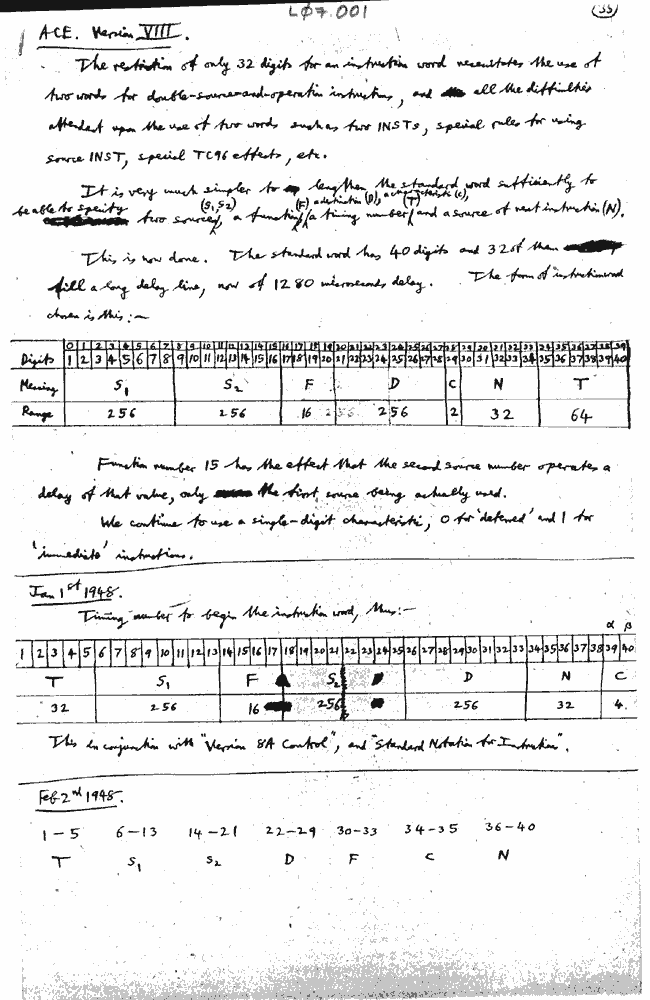 LØ7.001
33
ACE. Version VIII.
The restriction of only 32 digits for an instruction word necessitates the use of
two words for double-source-and-operation instructions, and all the difficulties
attendant upon the use of two words such as two INSTs, special rules for using
source INST, special TC96 effects, etc.
It is very much simpler to lengthen the standard word sufficiently to
be able to specify two sources (S1, S2), a function (F), a destination (D), a characteristic (C), a timing number (T) and a source of next instruction (N).
This is now done. The standard word has 40 digits and 32 of them
fill a long delay line, now of 1280 microseconds delay. The form of instruction word
chosen is this :—
0 1 2 3 4 5 6 7 8 9 10 11 12 13 14 15 16 17 18 19 20 21 22 23 24 25 26 27 28 29 30 31 32 33 34 35 36 37 38 39
Digits 1 2 3 4 5 6 7 8 9 10 11 12 13 14 15 16 17 18 19 20 21 22 23 24 25 26 27 28 29 30 31 32 33 34 35 36 37 38 39 40
Meaning S1 S2 F D C N T
Range 256 256 16 256 256 2 32 64
Function number 15 has the effect that the second source number operates a
delay of that value, only the first source being actually used.
We continue to use a single-digit characteristic, 0 for 'deferred' and 1 for
'immediate' instructions.
Jan 1st 1948.
Timing number to begin the instruction word, thus:—
α β
1 2 3 4 5 6 7 8 9 10 11 12 13 14 15 16 17 18 19 20 21 22 23 24 25 26 27 28 29 30 31 32 33 34 35 36 37 38 39 40
T S1 F S2 D N C
32 256 16 256 256 32 4
This in conjunction with "Version 8A Control", and "Standard Notation for Instruction".
Feb 2nd 1948.
1-5 6-13 14-21 22-29 30-33 34-35 36-40
T S1 S2 D F C N